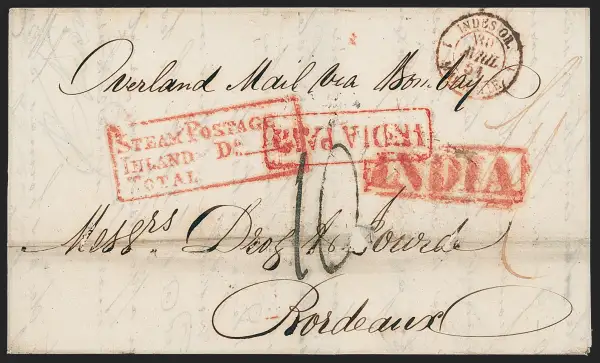 INDES OR.
AVRIL
Overland Mail via Bombay
STEAM POSTAGE
INLAND Do
TOTAL
INDIA PAID
INDIA
10
Messrs Droz & Jourde
Bordeaux